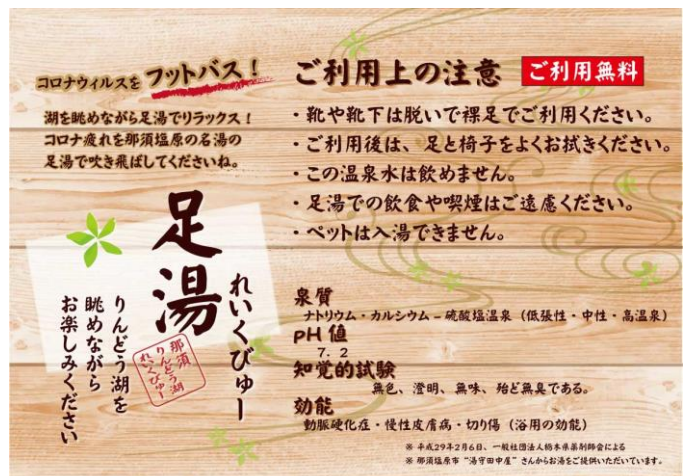 コロナウィルスを フットバス！
湖を眺めながら足湯でリラックス！
コロナ疲れを那須塩原の名湯の
足湯で吹き飛ばしてくださいね。
足湯
れいくびゅー
りんどう湖を
眺めながら
お楽しみください
那須
りんどう湖
れいくびゅー
ご利用上の注意 ご利用無料
・靴や靴下は脱いで裸足でご利用ください。
・ご利用後は、足と椅子をよくお拭きください。
・この温泉水は飲めません。
・足湯での飲食や喫煙はご遠慮ください。
・ペットは入湯できません。
泉質
ナトリウム・カルシウム－硫酸塩温泉（低張性・中性・高温泉）
pH 値
7.2
知覚的試験
無色、澄明、無味、殆ど無臭である。
効能
動脈硬化症・慢性皮膚病・切り傷（浴用の効能）
※ 平成29年2月6日、一般社団法人栃木県薬剤師会による
※ 那須塩原市 “湯守田中屋” さんからお湯をご提供いただいています。